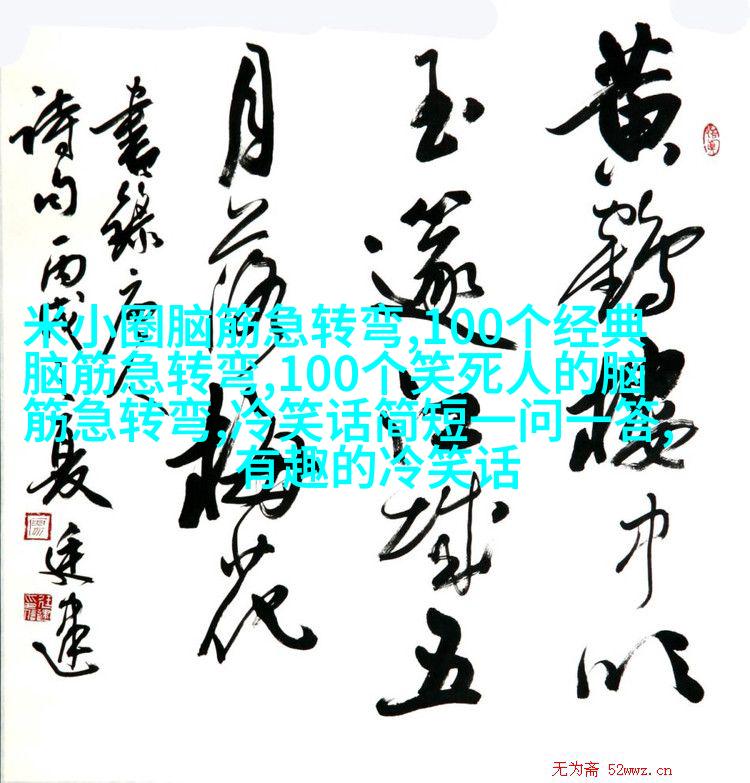 黄鶴樓中吹
玉篴江城五
月落梅花
書錄唐人
詩句丙戌夏廷建
米小圈脑筋急转弯,100个经典
脑筋急转弯,100个笑死人的脑
筋急转弯,冷笑话简短一问一答,
有趣的冷笑话
无为斋 52wwz.cn